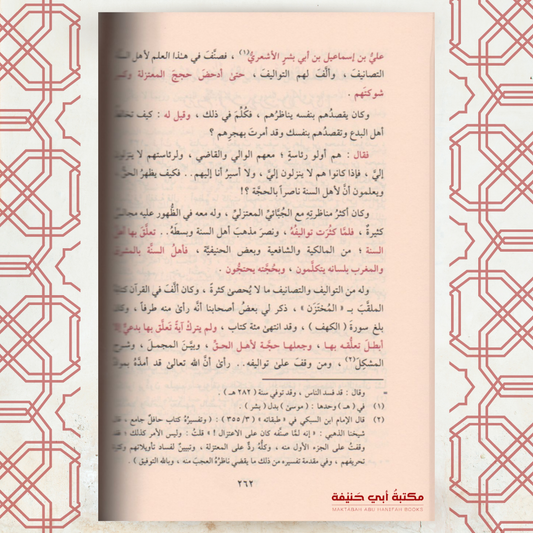 عليُّ بن إسماعيل بن أبي بشرٍ الأشعريُّ(١) ، فصنَّفَ في هذا العلم لأهل السنَّة
التصانيفَ ، وألَّفَ لهم التواليفَ ، حتىٰ أدحضَ حججَ المعتزلة وكسر
شوكتَهم . .
وكان يقصدُهم بنفسه يناظرُهم ، فكُلِّمَ في ذلك ، وقيل له : كيف تخالط
أهل البدع وتقصدُهم بنفسك وقد أمرتَ بهجرِهم ؟
فقال : هم أولو رئاسةٍ ؛ معهم الوالي والقاضي ، ولرئاستهم لا ينزلون
إليَّ ، فإذا كانوا هم لا ينزلون إليَّ ، ولا أسيرُ أنا إليهم . . فكيف يظهرُ الحقُّ
ويعلمون أنَّ لأهل السنة ناصراً بالحجَّة ؟!
وكان أكثرُ مناظرتِهِ مع الجُبَّائيِّ المعتزليِّ ، وله معه في الظُّهور عليه مجالسُ
كثيرةٌ ، فلمَّا كثُرَت تواليفُهُ ، ونصرَ مذهبَ أهل السنة وبسطَهُ . . تعلَّقَ بها أهل
السنة ؛ من المالكية والشافعية وبعض الحنفيَّة ، فأهلُ السنَّة بالمشرق
والمغرب بلسانه يتكلَّمون ، وبحُجَّته يحتجُّون .
وله من التواليف والتصانيف ما لا يُحصىٰ كثرةً ، وكان ألَّفَ في القرآن كتابَهُ
الملقَّبَ بـ « المُخْتَزَن » ، ذكر لي بعضُ أصحابنا أنَّه رأىٰ منه طرفاً ، وكان
بلغ سورة ( الكهف ) ، وقد انتهىٰ مئة كتاب ، ولم يتركْ آيةً تَعلَّق بها بدعيٌّ إلا
أبطلَ تعلُّقَه بها ، وجعلها حجَّةً لأهل الحقِّ ، وبيَّنَ المجملَ ، وشرح
المشكِلَ(٢) ، ومن وقفَ علىٰ تواليفه . . رأىٰ أنَّ الله تعالىٰ قد أمدَّهُ بموادِّ
= وقال : قد فسد الناس ، وقد توفي سنة ( ٢٨٢ هـ ) .
(١) في ( هـ ) وحدها : ( موسىٰ ) بدل ( بشر ) .
(٢) قال الإمام ابن السبكي في « طبقاته » ( ٣/ ٣٥٥ ) : ( وتفسيرُهُ كتاب حافلٌ جامع ، قال
شيخنا الذهبي : « إنه لمَّا صنَّفه كان على الاعتزال » ! قلتُ : وليس الأمر كذلك ؛ فقد
وقفتُ على الجزء الأول منه ، وكلُّه ردٌّ على المعتزلة ، وتبيينٌ لفساد تأويلاتهم وكثرة
تحريفهم ، وفي مقدمة تفسيره من ذلك ما يقضي ناظرُهُ العجبَ منه ، وبالله التوفيق ) .
٢٦٢
مكتبة أبي حنيفة
MAKTABAH ABU HANEFAH BOOKS